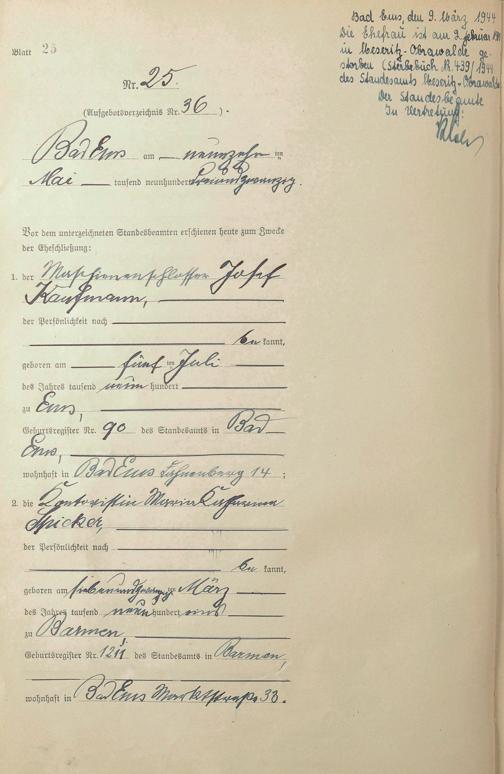 Blatt 25
Bad Ems, den 9. März 1944
Die Ehefrau ist am 2. Februar 1944
in Meseritz-Obrawalde ge-
storben (Sterbebuch N. 439/1944
des Standesamts Meseritz-Obrawalde
Der Standesbeamte
In Vertretung:
Nr. 25.
(Aufgebotsverzeichnis Nr. 36).
Bad Ems am neunzehn ten
Mai tausend neunhundert dreiundzwanzig.
Vor dem unterzeichneten Standesbeamten erschienen heute zum Zwecke
der Eheschließung:
1. der Maschinenschlosser Josef
Kaufmann,
der Persönlichkeit nach
be kannt,
geboren am fünften Juli
des Jahres tausend neun hundert
zu Ems,
Geburtsregister Nr. 90 des Standesamts in Bad
Ems,
wohnhaft in Bad Ems Lahnenberg 14;
2. die Kontoristin Maria Katharina
Spicker,
der Persönlichkeit nach
be kannt,
geboren am siebenundzwanzig ten März
des Jahres tausend neun hundert eins
zu Barmen,
Geburtsregister Nr. 1211 des Standesamts in Barmen,
wohnhaft in Bad Ems Marktstraße 33.